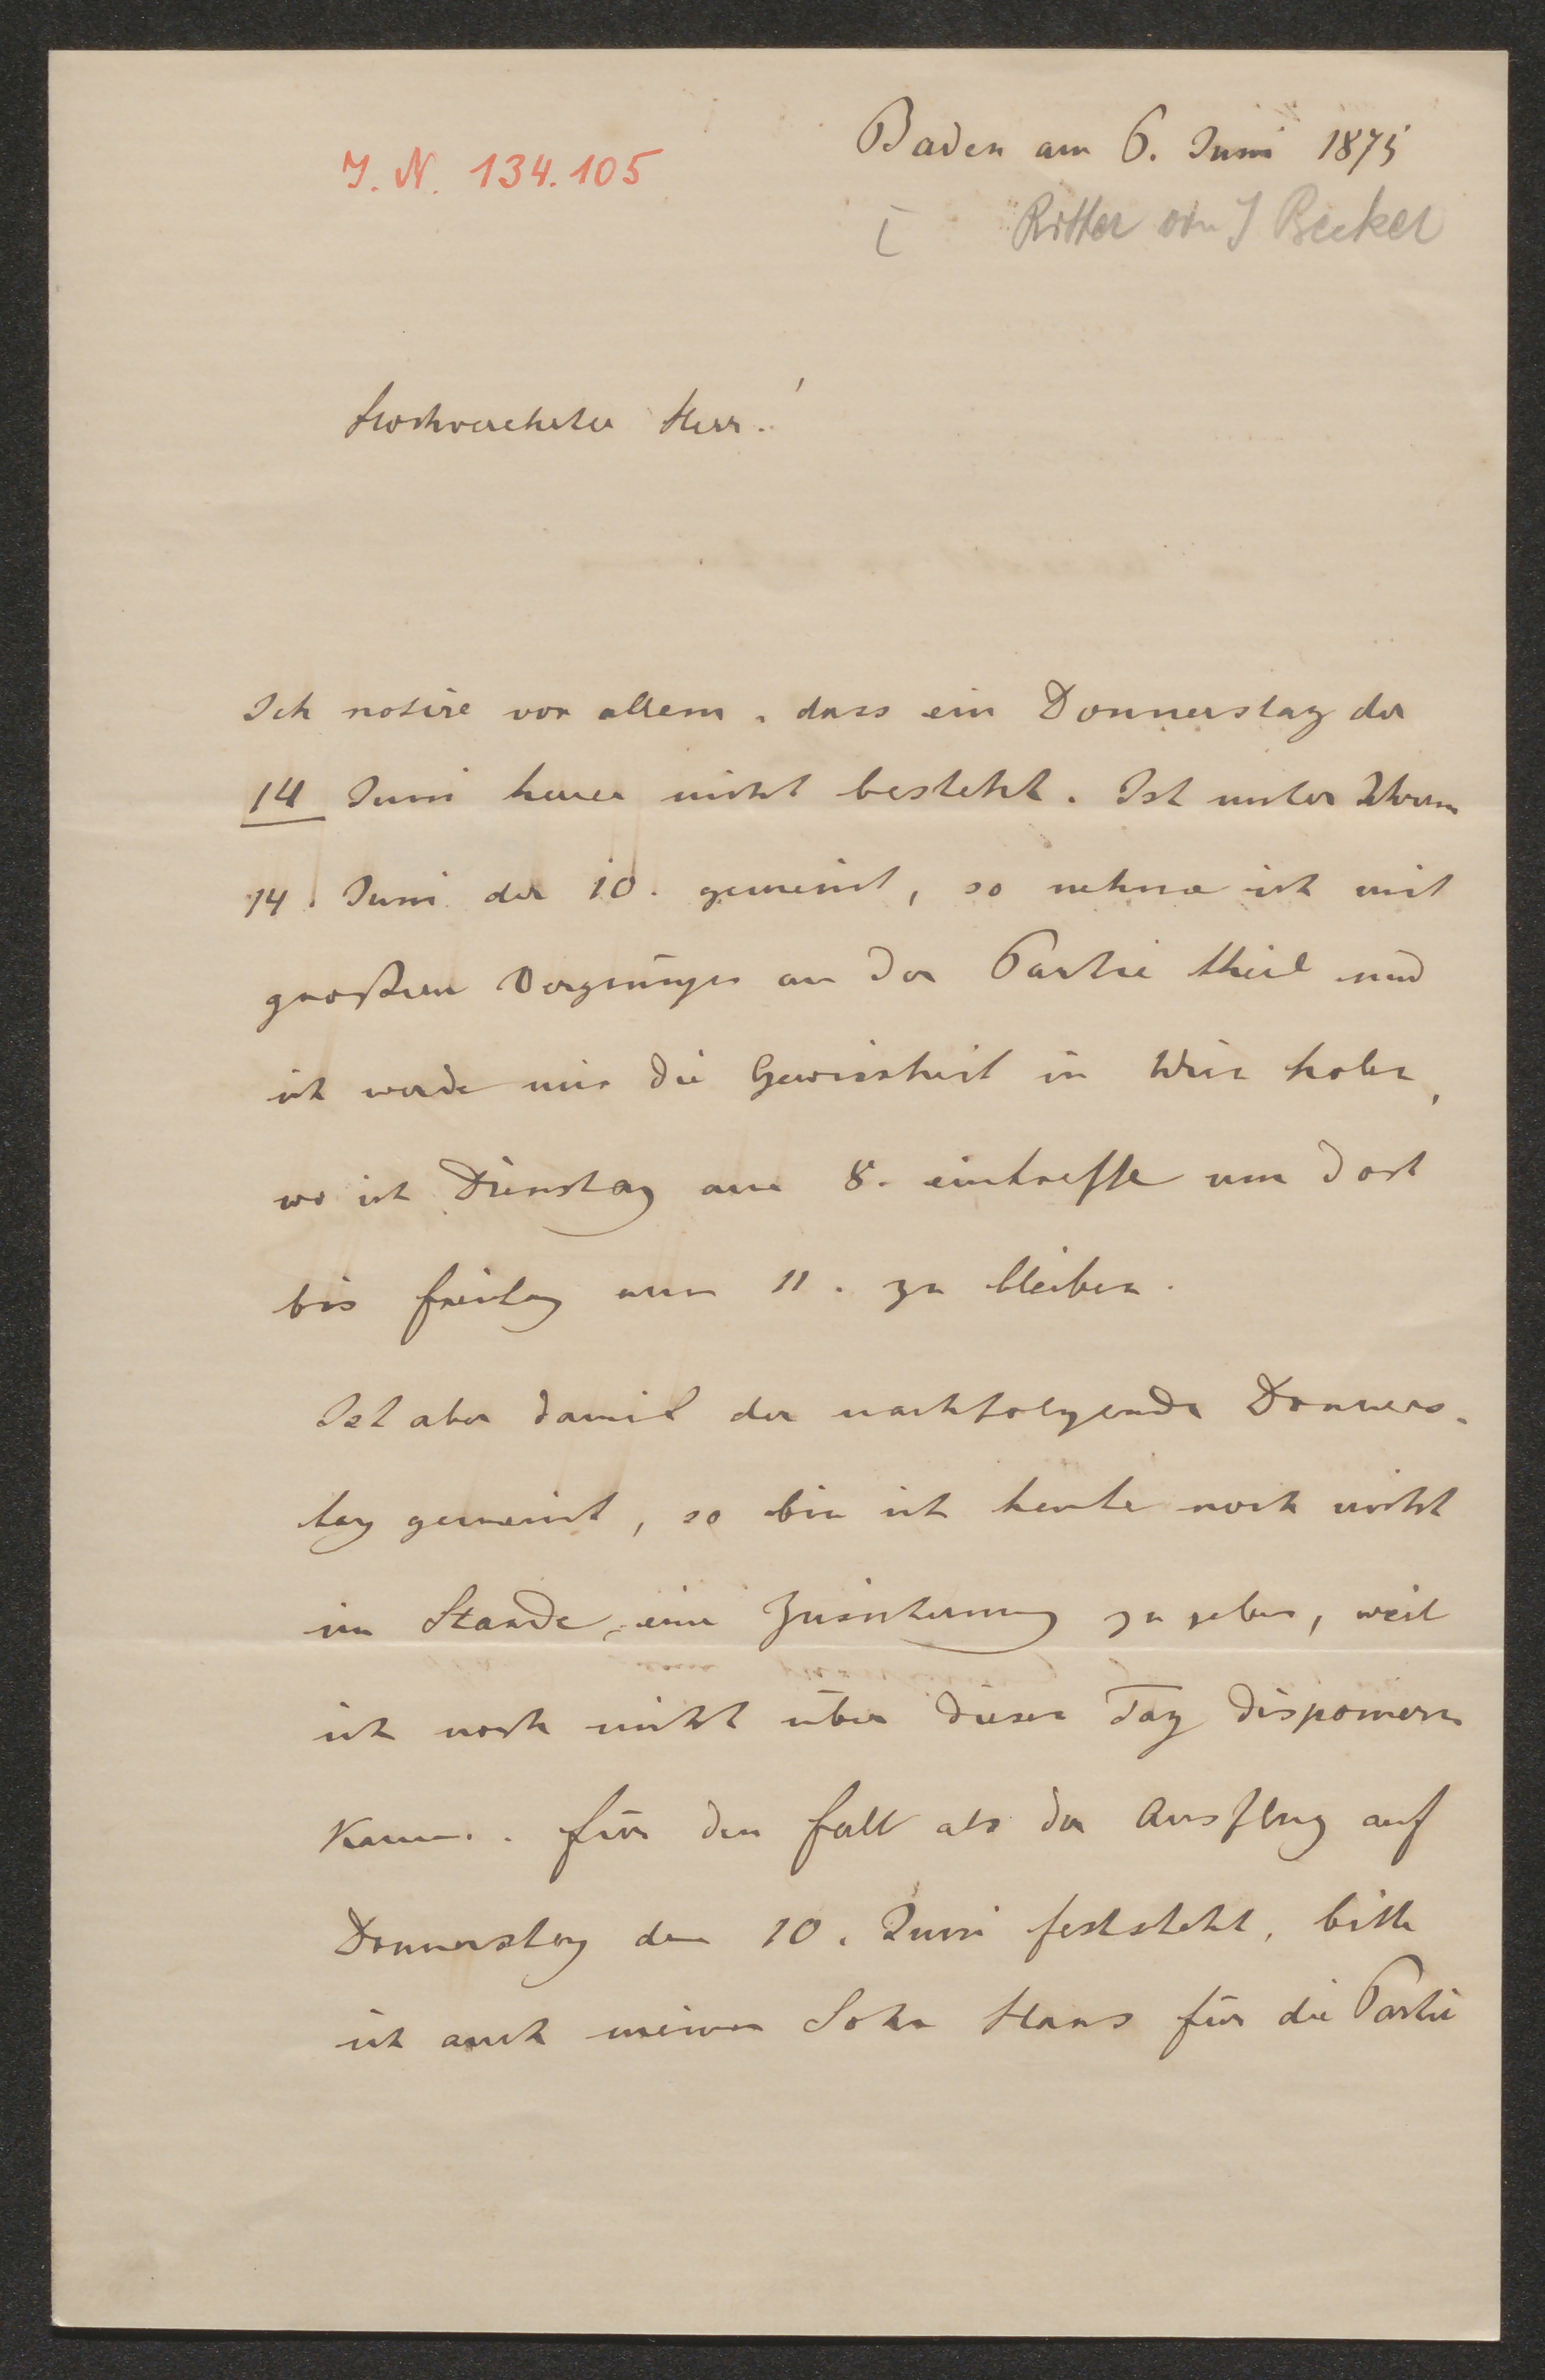 Baden am 6. Juni 1875
J. N. 134.105
Ritter von J Becker
Hochverehrter Herr!
Ich notire vor allem, dass ein Donnerstag der
14 Juni heuer nicht besteht. Ist unter Ihrem
14. Juni der 10. gemeint, so nehme ich mit
großem Vergnügen an der Partie theil und
ich werde mir die Gewissheit in Wien holen,
wo ich Dienstag am 8. eintreffe um dort
bis Freitag am 11. zu bleiben.
Ist aber damit der nachfolgende Donners-
tag gemeint, so bin ich heute noch nicht
im Stande, eine Zusicherung zu geben, weil
ich noch nicht über diesen Tag disponieren
kann. Für den Fall als der Ausflug auf
Donnerstag den 10. Juni feststeht, bitte
ich auch meinen Sohn Hans für die Partie